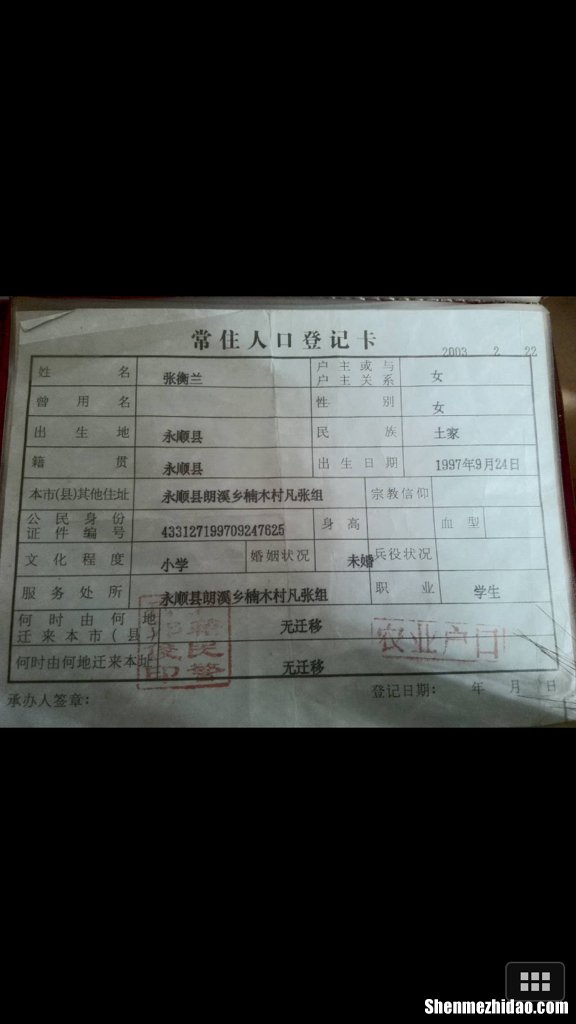 常住人口登记卡
2003 2 22
姓名 张衡兰 户主或与户主关系 女
曾用名 性别 女
出生地 永顺县 民族 土家
籍贯 永顺县 出生日期 1997年9月24日
本市(县)其他住址 永顺县朗溪乡楠木村凡张组 宗教信仰
公民身份证件编号 433127199709247625 身高 血型
文化程度 小学 婚姻状况 未婚 兵役状况
服务处所 永顺县朗溪乡楠木村凡张组 职业 学生
何时由何地迁来本市(县) 无迁移 农业户口
何时由何地迁来本址 无迁移
承办人签章: 登记日期: 年 月 日
Shenmezhidao.com